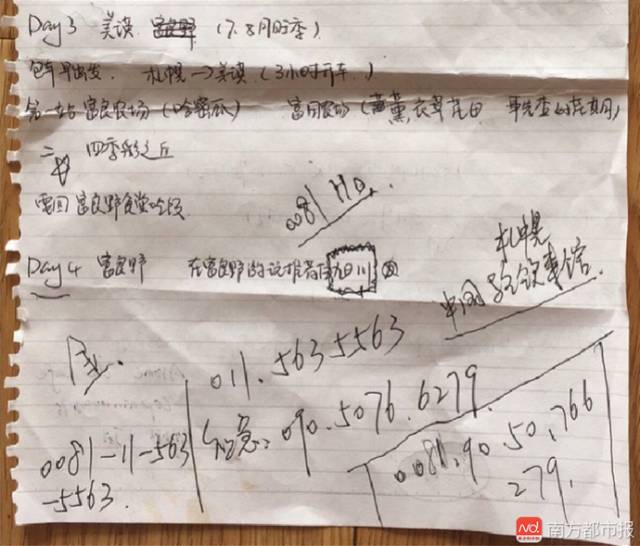 Day 3 美瑛 富良野 (7.8月旺季)
包车早出发. 札幌→美瑛 (3小时开车.)
第一站 富良农场 (哈密瓜) 富田农场 (薰衣草花田 事先查好花期)
二 四季彩之丘
电回 富良野食堂吃饭
0081 Ho.
札幌
中国总领事馆.
Day 4 富良野 在富良野的话推荐住旭川
011.5635563
0081-11-563
-5563.
(紧急: 090.5076.6279.
0081.90.50.766
279.
南方都市报